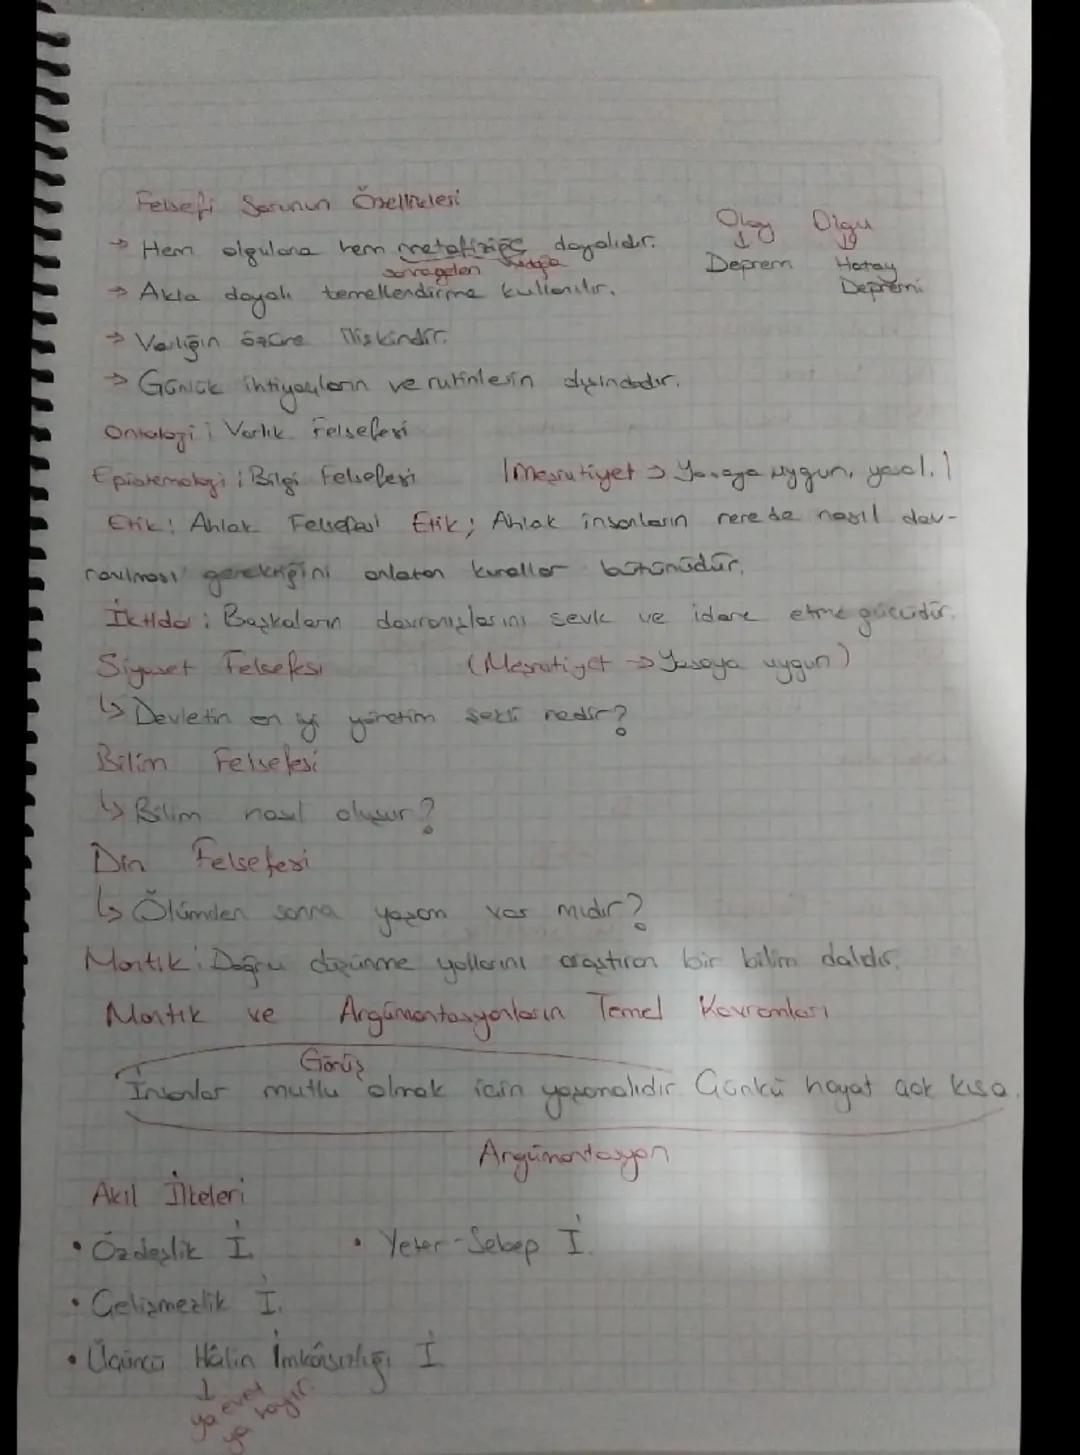 Felsefi Sorunun Özellikleri
Olay Olgu
→ Hem olgulara hem metafiziğe dayalıdır.
Deprem Hatay Depremi
sonra gelen
→ Akla dayalı temellendirme kullanılır.
→ Varlığın özüne ilişkindir.
→ Günlük ihtiyaçların ve rutinlerin dışındadır.
Ontoloji; Varlık Felsefesi
Epistemoloji; Bilgi Felsefesi |Meşrutiyet → Yasaya uygun, yasal.|
Etik: Ahlak Felsefesi Etik; Ahlak insanların nerede nasıl dav-
ranılması gerektiğini anlatan kurallar bütünüdür.
İktidar; Başkaların davranışlarını sevk ve idare etme gücüdür.
Siyaset Felsefesi (Meşrutiyet → Yasaya uygun)
↳ Devletin en iyi yönetim şekli nedir?
Bilim Felsefesi
↳ Bilim nasıl oluşur?
Din Felsefesi
↳ Ölümden sonra yaşam var mıdır?
Mantık; Doğru düşünme yollarını araştıran bir bilim dalıdır.
Mantık ve Argümantasyonların Temel Kavramları
Görüş
İnsanlar mutlu olmak için yaşamalıdır. Çünkü hayat çok kısa.
Argümantasyon
Akıl İlkeleri
• Özdeşlik İ. • Yeter-Sebep İ.
• Çelişmezlik İ.
• Üçüncü Hâlin İmkânsızlığı İ.
↓
ya evet
ya hayır.